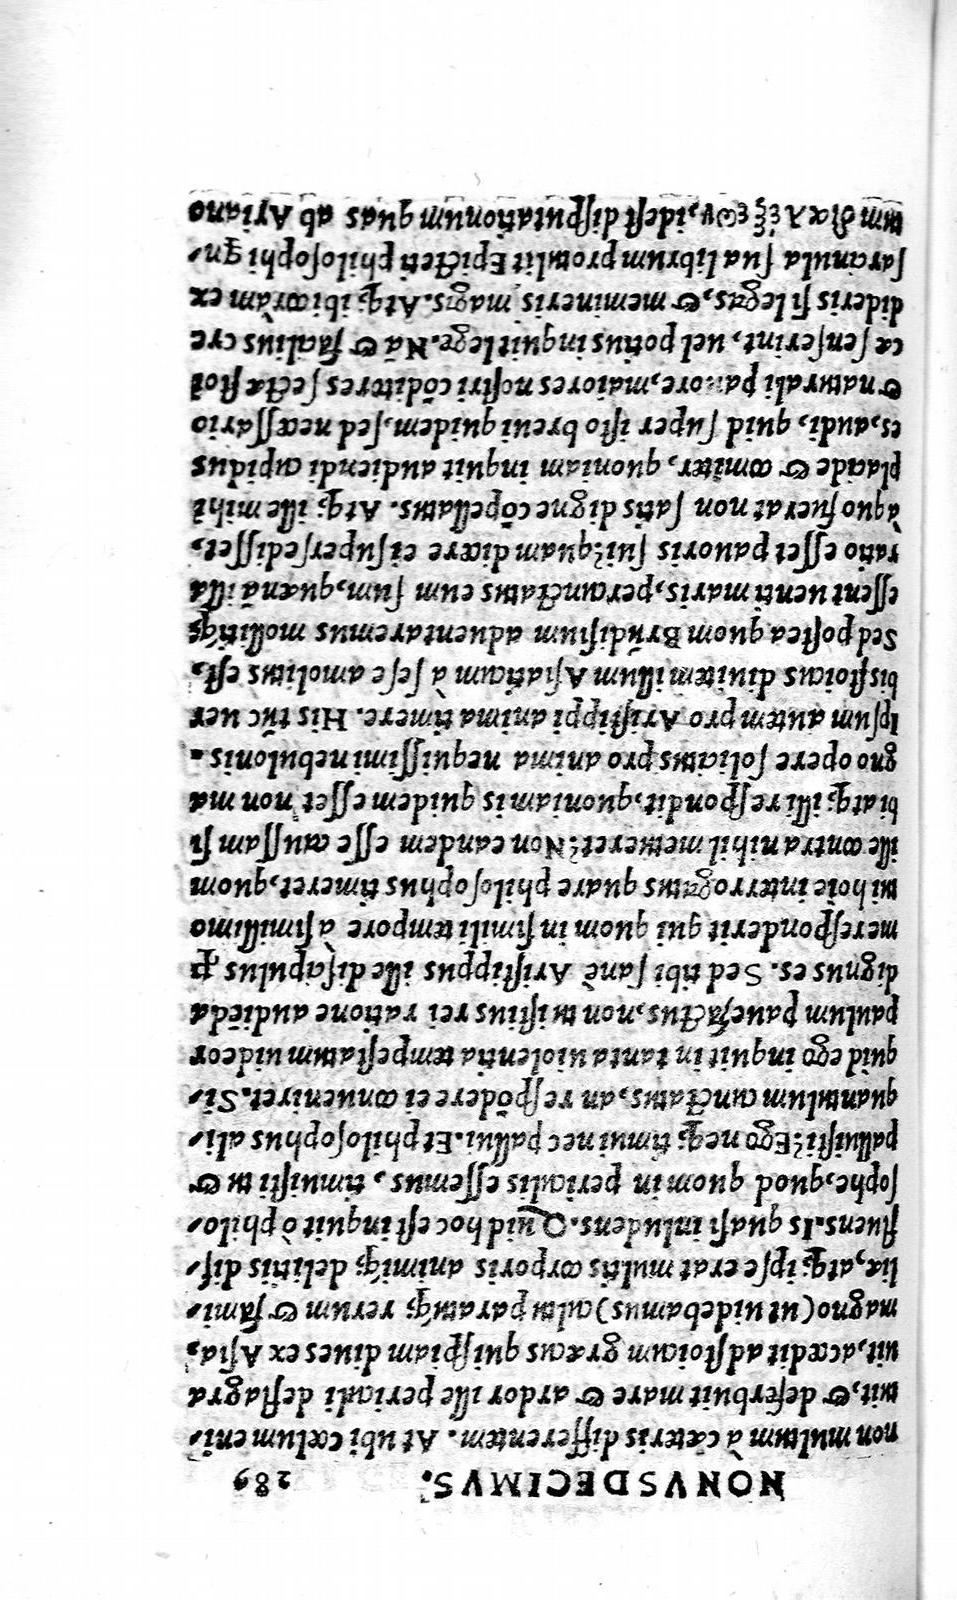 NONVSDECIMVS. 289
non multum à cæteris differentem. At ubi cœlum eni-
tuit, & deferbuit mare & ardor ille periculi deflagra
uit, accedit ad stoicum græcus quispiam diues ex Asia,
magno (ut uidebamus) cultu paratuq; rerum & fami-
lia, atq; ipse erat multis corporis animiq; delitiis dif-
fluens. Is quasi inludens. Quid hoc est inquit ò philo-
sophe, quod quom in periculis essemus, timuisti tu &
palluisti? Ego neq; timui nec pallui. Et philosophus ali-
quantulum cunctatus, an respōdere ei conueniret. Si-
quid ego inquit in tanta uiolentia tempestatum uideor
paulum pauefactus, non tu istius rei ratione audiēda
dignus es. Sed tibi sanè Aristippus ille discipulus ꝓ
me responderit qui quom in simili tempore à simillimo
tui hoīe interrogatus quare philosophus timeret, quom
ille contra nihil metueret? Non eandem esse caussam si
bi atq; illi respondit, quoniam is quidem esset non ma
gno opere solicitus pro anima nequissimi nebulonis.
Ipsum autem pro Aristippi anima timere. His tūc uer
bis stoicus diuitem illum Asiaticum à sese amolitus est,
Sed postea quom Brundisium aduentaremus mollitiq;
essent uenti maris, percunctatus eum sum, quænā illa
ratio esset pauoris sui? quam dicere ei supersedisset,
à quo fuerat non satis digne cōpellatus. Atq; ille mihi
placide & comiter, quoniam inquit audiendi cupidus
es, audi, quid super isto breui quidem, sed necessario
& naturali pauore, maiores nostri cōditores sectæ stoi
cæ senserint, uel potius inquit lege. Nā & facilius cre
dideris si legas, & memineris magis. Atq; ibi coram ex
sarcinula sua librum protulit Epicteti philosophi qn-
tum διαλέξεων, idest disputationum quas ab Ariano